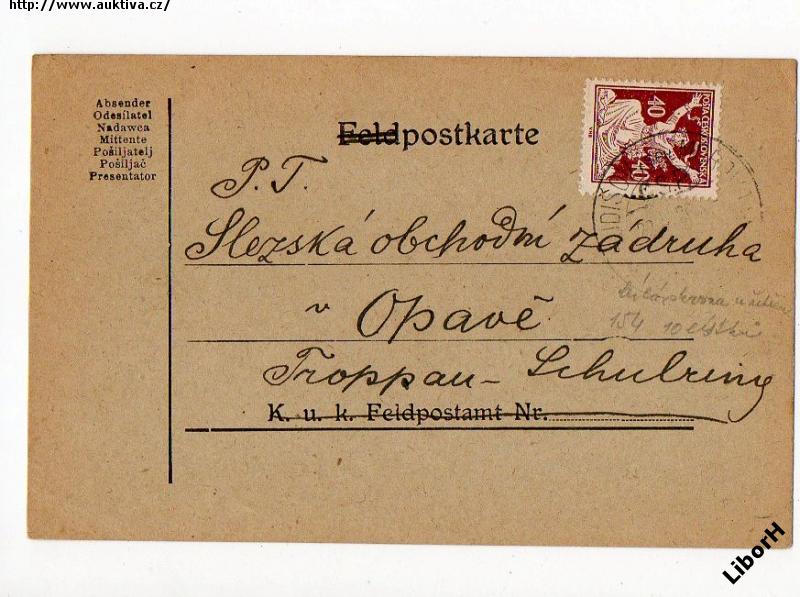 http://www.auktiva.cz/
Absender
Odesílatel
Nadawca
Mittente
Pošiljatelj
Pošiljač
Presentator
Feldpostkarte
40
40
POŠTA ČESKOSLOVENSKÁ
P. T.
Slezská obchodní záđruha
v Opavě
Troppau - Schulring
K. u. k. Feldpostamt Nr.
154
LiborH